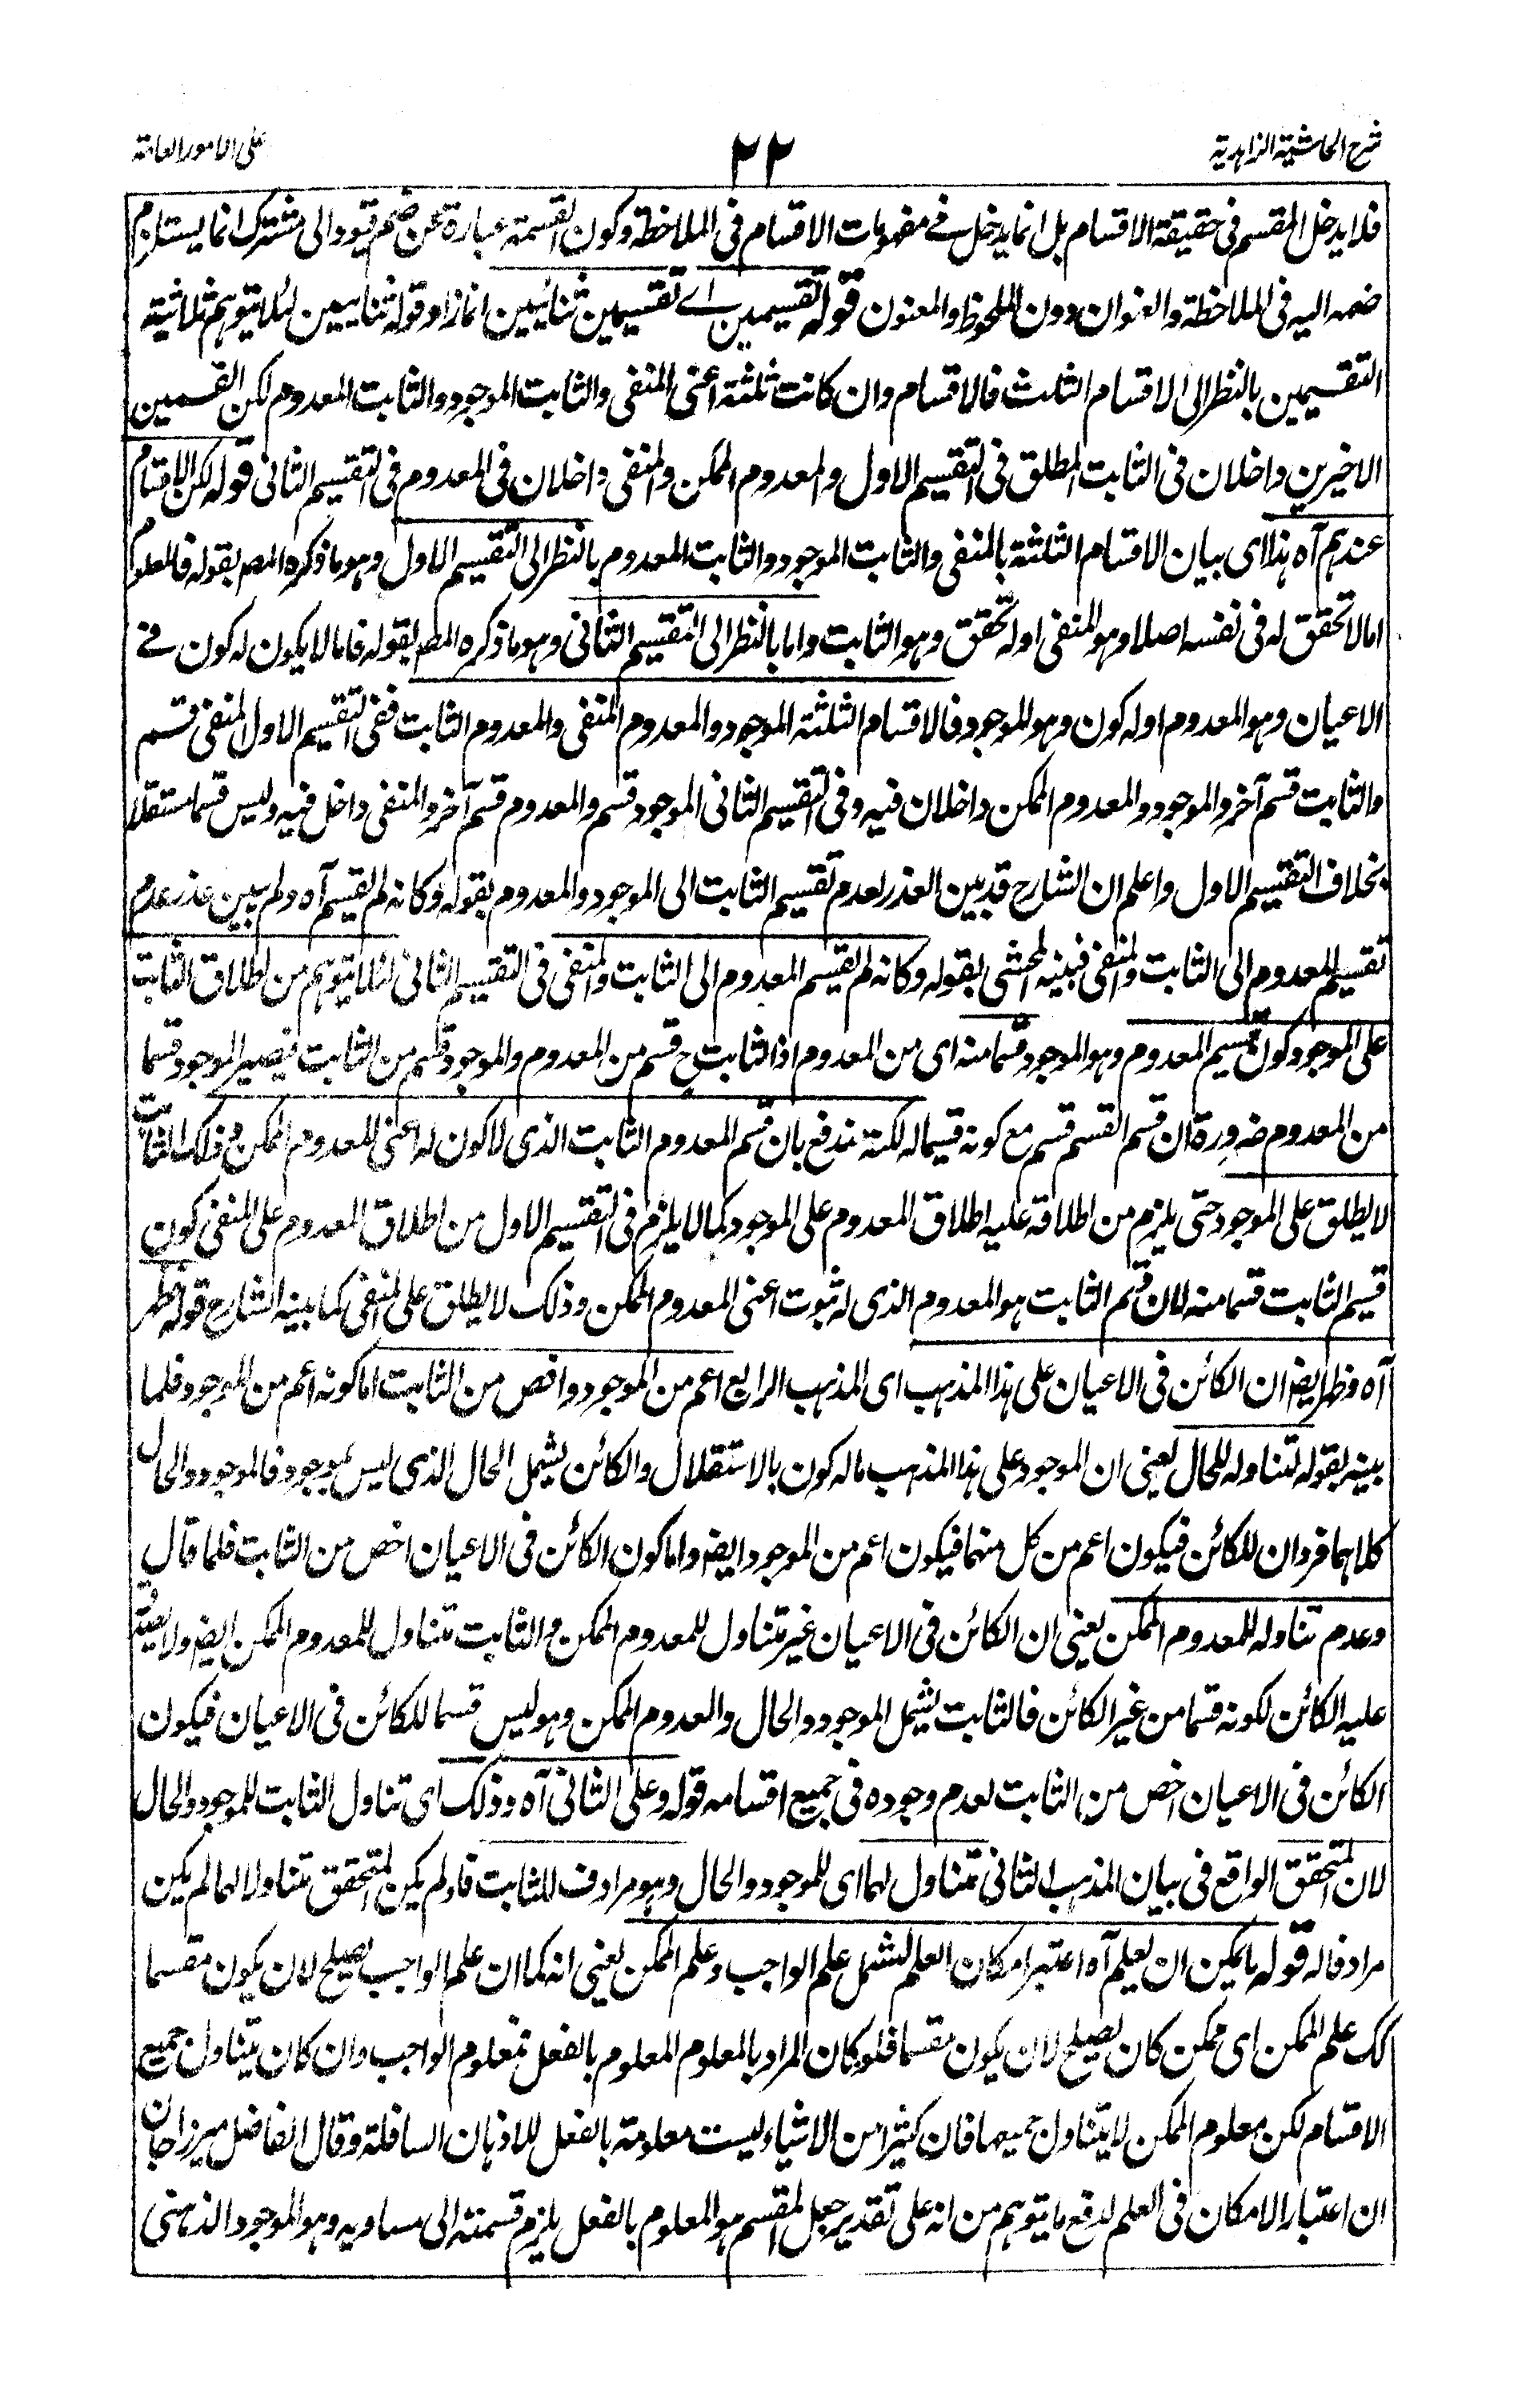 شرح الحاشية الزاهدية
٢٢
على الامور العامة
فلا يدخل المقسم فى حقيقة الاقسام بل انما يدخل فے مفهومات الاقسام فى الملاحظة وكون القسمة عبارة عن ضم قيود الى مشترك انما يستلزم
ضمه اليه فى الملاحظة والعنوان دون الملحوظ والمعنون قوله تقسيمين اے تقسيمين ثنائيين انما زاد قوله ثنائيين لئلا يتوهم ثلاثية
التقسيمين بالنظر الى الاقسام الثلث فالاقسام وان كانت ثلثة اعنى المنفى والثابت الموجود والثابت المعدوم لكن القسمين
الاخيرين داخلان فى الثابت المطلق فى التقسيم الاول والمعدوم الممكن والمنفى داخلان فى المعدوم فى التقسيم الثانى قوله لكن الاقسام
عندهم آه هذا اى بيان الاقسام الثلثة بالمنفى والثابت الموجود والثابت المعدوم بالنظر الى التقسيم الاول وهو ما ذكره المصـ بقوله فالمعلوم
اما لا تحقق له فى نفسه اصلا وهو المنفى او له تحقق وهو الثابت واما بالنظر الى التقسيم الثانى وهو ما ذكره المصـ بقوله فاما لا يكون له كون فے
الاعيان وهو المعدوم او له كون وهو الموجود فالاقسام الثلثة الموجود والمعدوم المنفى والمعدوم الثابت ففى التقسيم الاول المنفى قسم
والثابت قسم آخر والموجود والمعدوم الممكن داخلان فيه وفى التقسيم الثانى الموجود قسم والمعدوم قسم آخر والمنفى داخل فيه وليس قسما مستقلا
بخلاف التقسيم الاول واعلم ان الشارح قد بين العذر لعدم تقسيم الثابت الى الموجود والمعدوم بقوله وكانه لم يقسم آه ولم يبين عذر عدم
تقسيم المعدوم الى الثابت والمنفى فبينه المحشى بقوله وكانه لم يقسم المعدوم الى الثابت والمنفى فى التقسيم الثانى لئلا يتوهم من اطلاق الثابت
على الموجود كون قسيم المعدوم وهو الموجود قسما منه اى من المعدوم اذا الثابت ح قسم من المعدوم والموجود قسم من الثابت فيصير الموجود قسما
من المعدوم ضرورة ان قسم القسم قسم مع كونه قسيما له لكنه مندفع بان قسم المعدوم الثابت الذى لا كون له اعنى المعدوم الممكن وذلك الثابت
لا يطلق على الموجود حتى يلزم من اطلاقه عليه اطلاق المعدوم على الموجود كما لا يلزم فى التقسيم الاول من اطلاق المعدوم على المنفى كون
قسيم الثابت قسما منه لان قسم الثابت هو المعدوم الذى له ثبوت اعنى المعدوم الممكن وذلك لا يطلق على المنفى كما بينه الشارح قوله فظهر
آه وظهر ايضـ ان الكائن فى الاعيان على هذا المذهب اى المذهب الرابع اعم من الموجود واخص من الثابت اما كونه اعم من الموجود فلما
بينه بقوله لتناوله للحال يعنى ان الموجود على هذا المذهب ما له كون بالاستقلال والكائن يشمل الحال الذى ليس بموجود فالموجود والحال
كلاهما فردان للكائن فيكون اعم من كل منهما فيكون اعم من الموجود ايضـ واما كون الكائن فى الاعيان اخص من الثابت فلما قال
وعدم تناوله للمعدوم الممكن يعنى ان الكائن فى الاعيان غير متناول للمعدوم الممكن والثابت متناول للمعدوم الممكن ايضـ ولا يصدق
عليه الكائن لكونه قسما من غير الكائن فالثابت يشمل الموجود والحال والمعدوم الممكن وهو ليس قسما للكائن فى الاعيان فيكون
الكائن فى الاعيان اخص من الثابت لعدم وجوده فى جميع اقسامه قوله وعلى الثانى آه وذلك اى تناول الثابت للموجود والحال
لان المتحقق الواقع فى بيان المذهب الثانى متناول لهما اى للموجود والحال وهو مرادف للثابت فلو لم يكن المتحقق متناولا لهما لم يكن
مرادفا له قوله ما يمكن ان يعلم آه اعتبر امكان العلم ليشمل علم الواجب وعلم الممكن يعنى انه كما ان علم الواجب يصلح لان يكون مقسما
كك علم الممكن اى ممكن كان يصلح لان يكون مقسما فلو كان المراد بالمعلوم المعلوم بالفعل فمعلوم الواجب وان كان يتناول جميع
الاقسام لكن معلوم الممكن لا يتناول جميعها فان كثيرا من الاشياء ليست معلومة بالفعل للاذهان السافلة وقال الفاضل ميرزا جان
ان اعتبار الامكان فى العلم لدفع ما يتوهم من انه على تقدير جعل المقسم هو المعلوم بالفعل يلزم قسمته الى مساويه وهو الموجود الذهنى